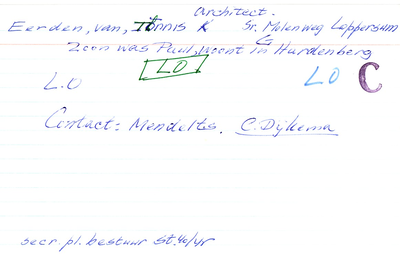 Architect.
Eerden, van, Tönnis K Sr. Molenweg Loppersum
Zoon was Paul, woont in Hardenberg
LO
L.O LO C
Contact: Mendelts. C. Dijkema
secr. pl. bestuur St. 40/45